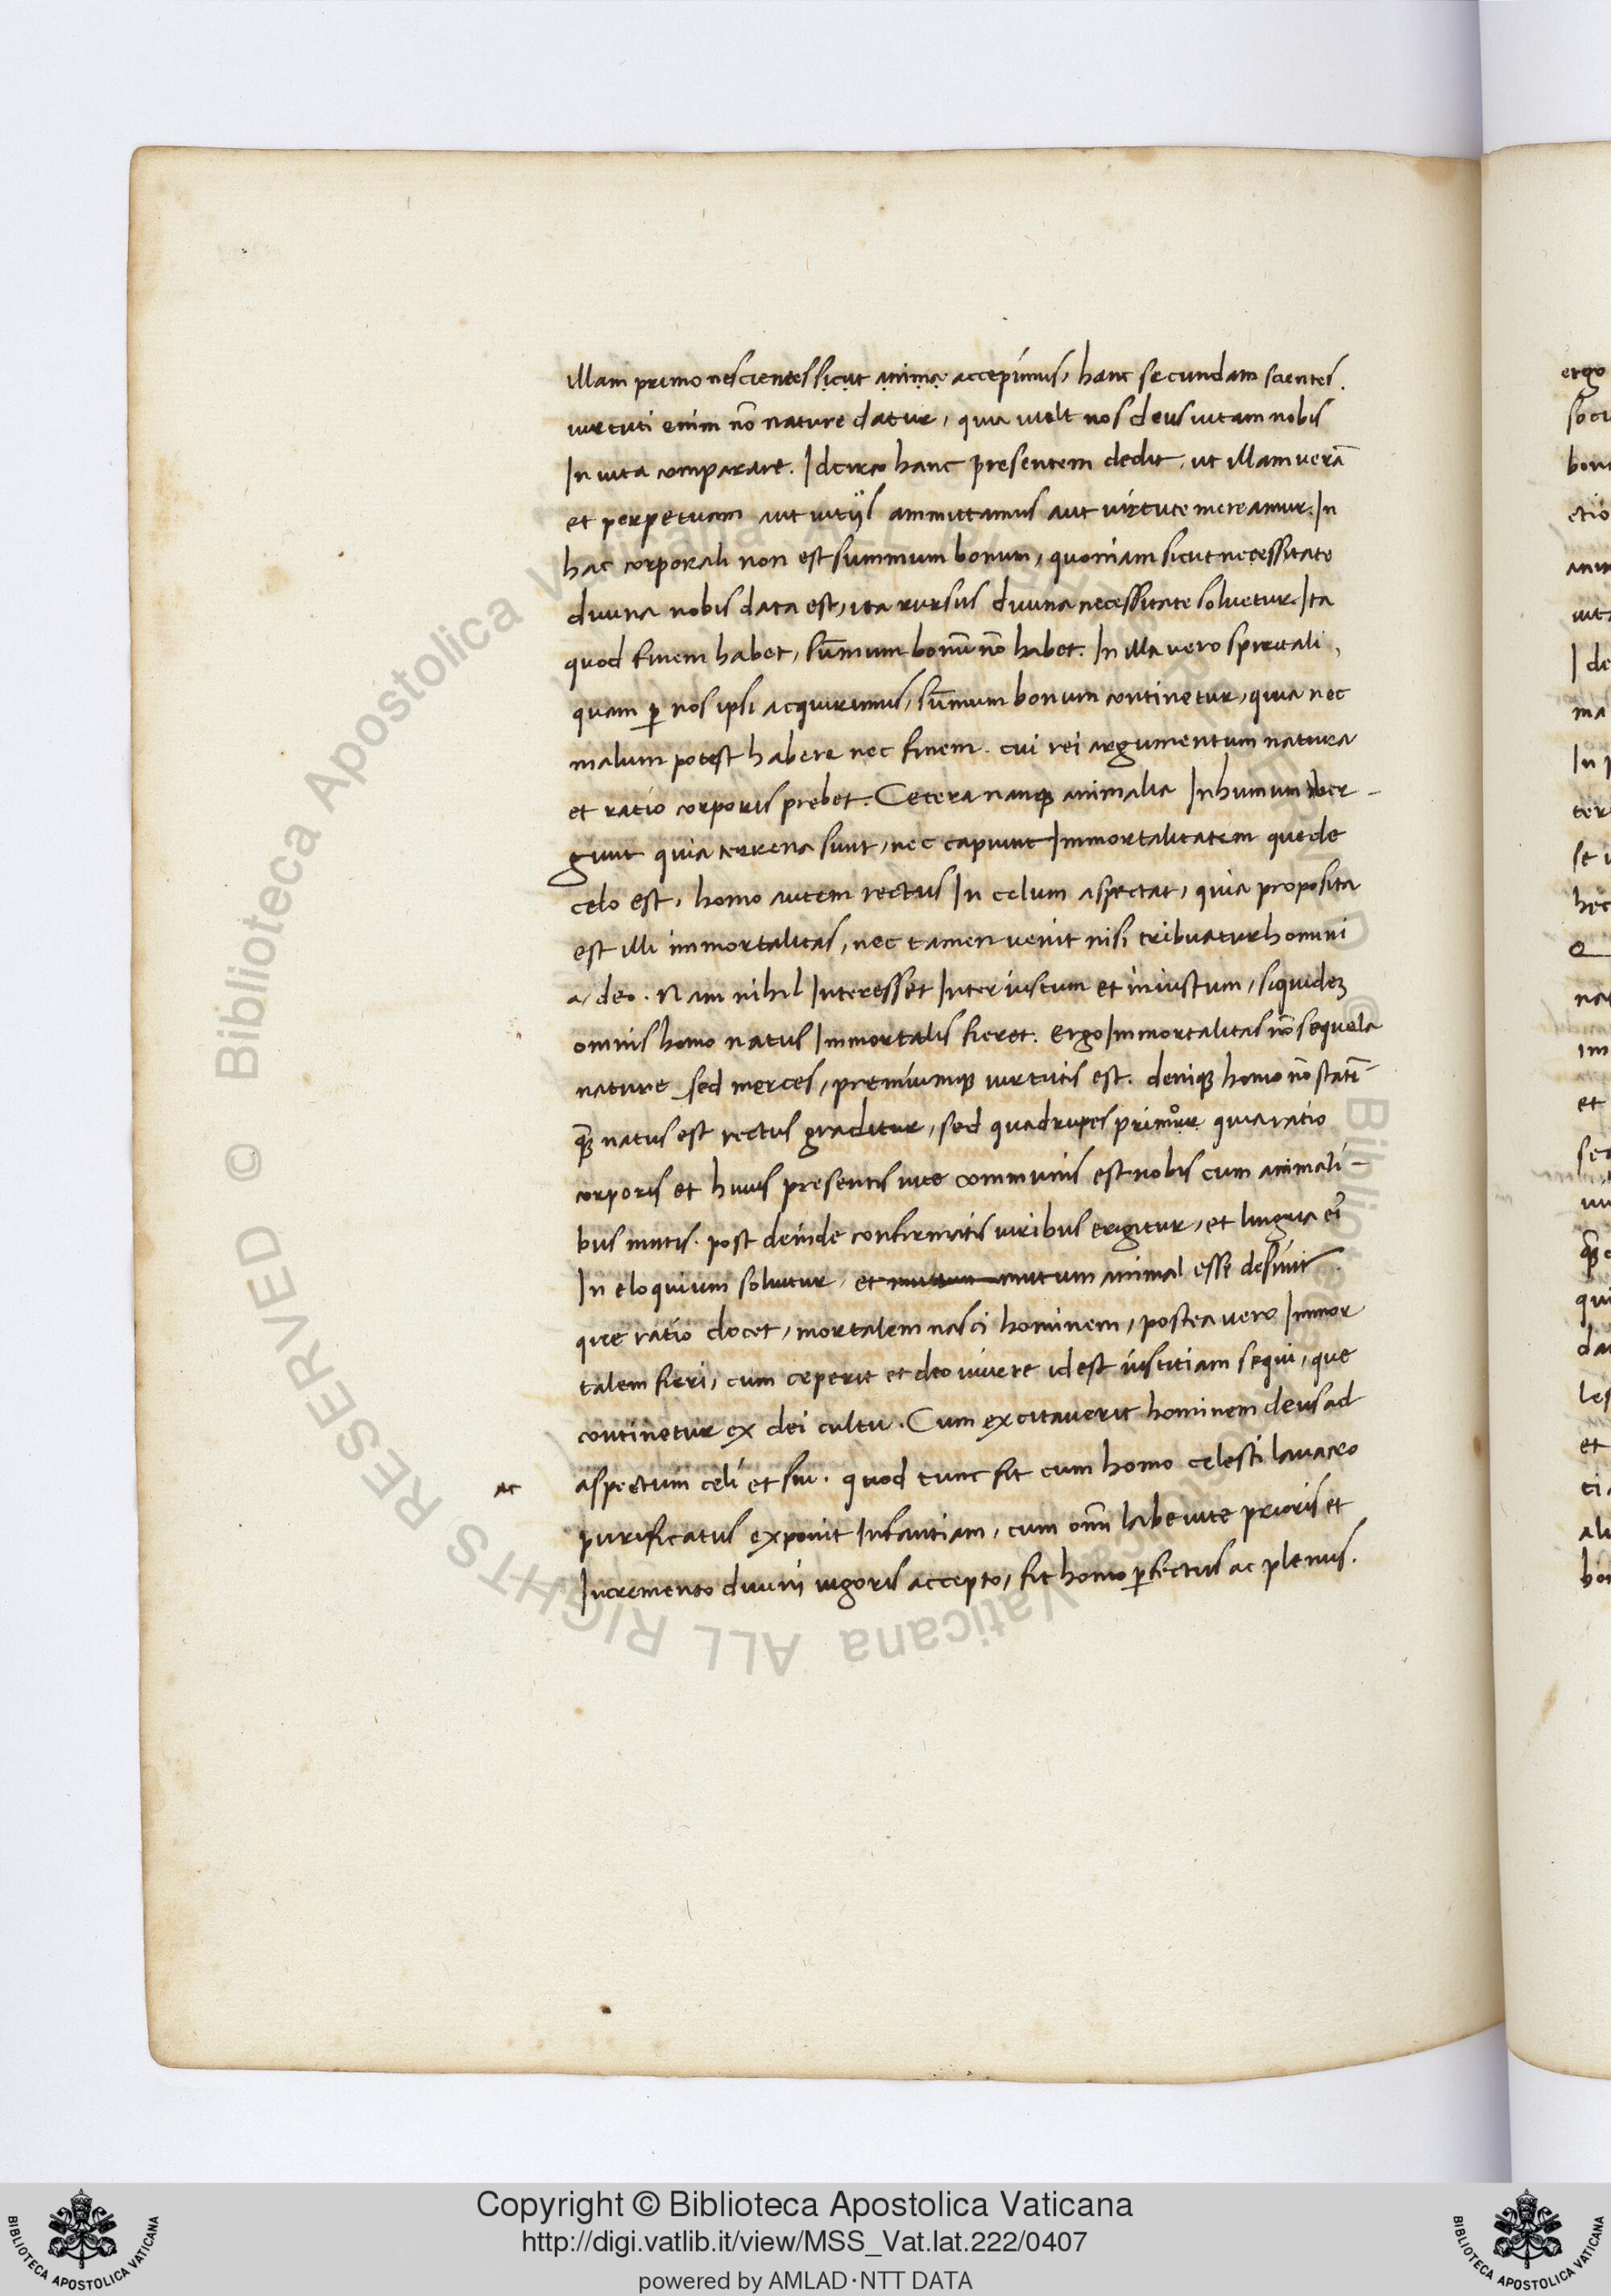 illam primo nescientes sicut anime accepimus, hanc secundam scientes.
virtuti enim nō nature datur, quia vult nos deus vitam nobis
In vita comparare. Idcirco hanc presentem dedit, ut illam verā
et perpetuam aut vitijs ammittamus aut virtute mereamur. In
hac corporali non est summum bonum, quoniam sicut necessitate
divina nobis data est, ita rursus divina necessitate solvetur. Ita
quod finem habet, sūmum bonū nō habet. In illa vero spiritali,
quam ꝑ nos ipsi acquirimus, sūmum bonum continetur, quia nec
malum potest habere nec finem. cui rei argumentum natura
et ratio corporis prebet. Cetera nanqꝫ animalia In humum ver-
gunt quia terrena sunt, nec capiunt Immortalitatem que de
celo est, homo autem rectus In celum aspectat, quia proposita
est illi immortalitas, nec tamen venit nisi tribuatur homini
a, deo. Nam nihil Interesset Inter iustum et iniustum, siquidеꝫ
omnis homo natus Immortalis fieret. ergo Immortalitas nō sequela
nature sed merces, premiumqꝫ virtutis est. deniqꝫ homo nō statī
natus est rectus graditur, sed quadrupes quia ratio
corporis et huius presentis vite communis est nobis cum animali-
bus mutis. post deinde confirmatis viribus erigitur, et lingua eī
In eloquium solvitur, et mutum animal esse desinit.
que ratio docet, mortalem nasci hominem, postea vero Immor
talem fieri, cum ceperit et deo vivere id est iustitiam sequi, que
continetur ex dei cultu. Cum excitaverit hominem deus ad
ac aspectum celi et sui. quod tunc fit cum homo celesti lavacro
purificatus exponit Infantiam, cum omī labe vite prioris et
Incremento divini vigoris accepto, fit homo ꝑfectus ac plenus.
ergo
Copyright © Biblioteca Apostolica Vaticana
http://digi.vatlib.it/view/MSS_Vat.lat.222/0407
powered by AMLAD·NTT DATA
BIBLIOTECA APOSTOLICA VATICANA
BIBLIOTECA APOSTOLICA VATICANA
© Biblioteca Apostolica Vaticana ALL RIGHTS RESERVED